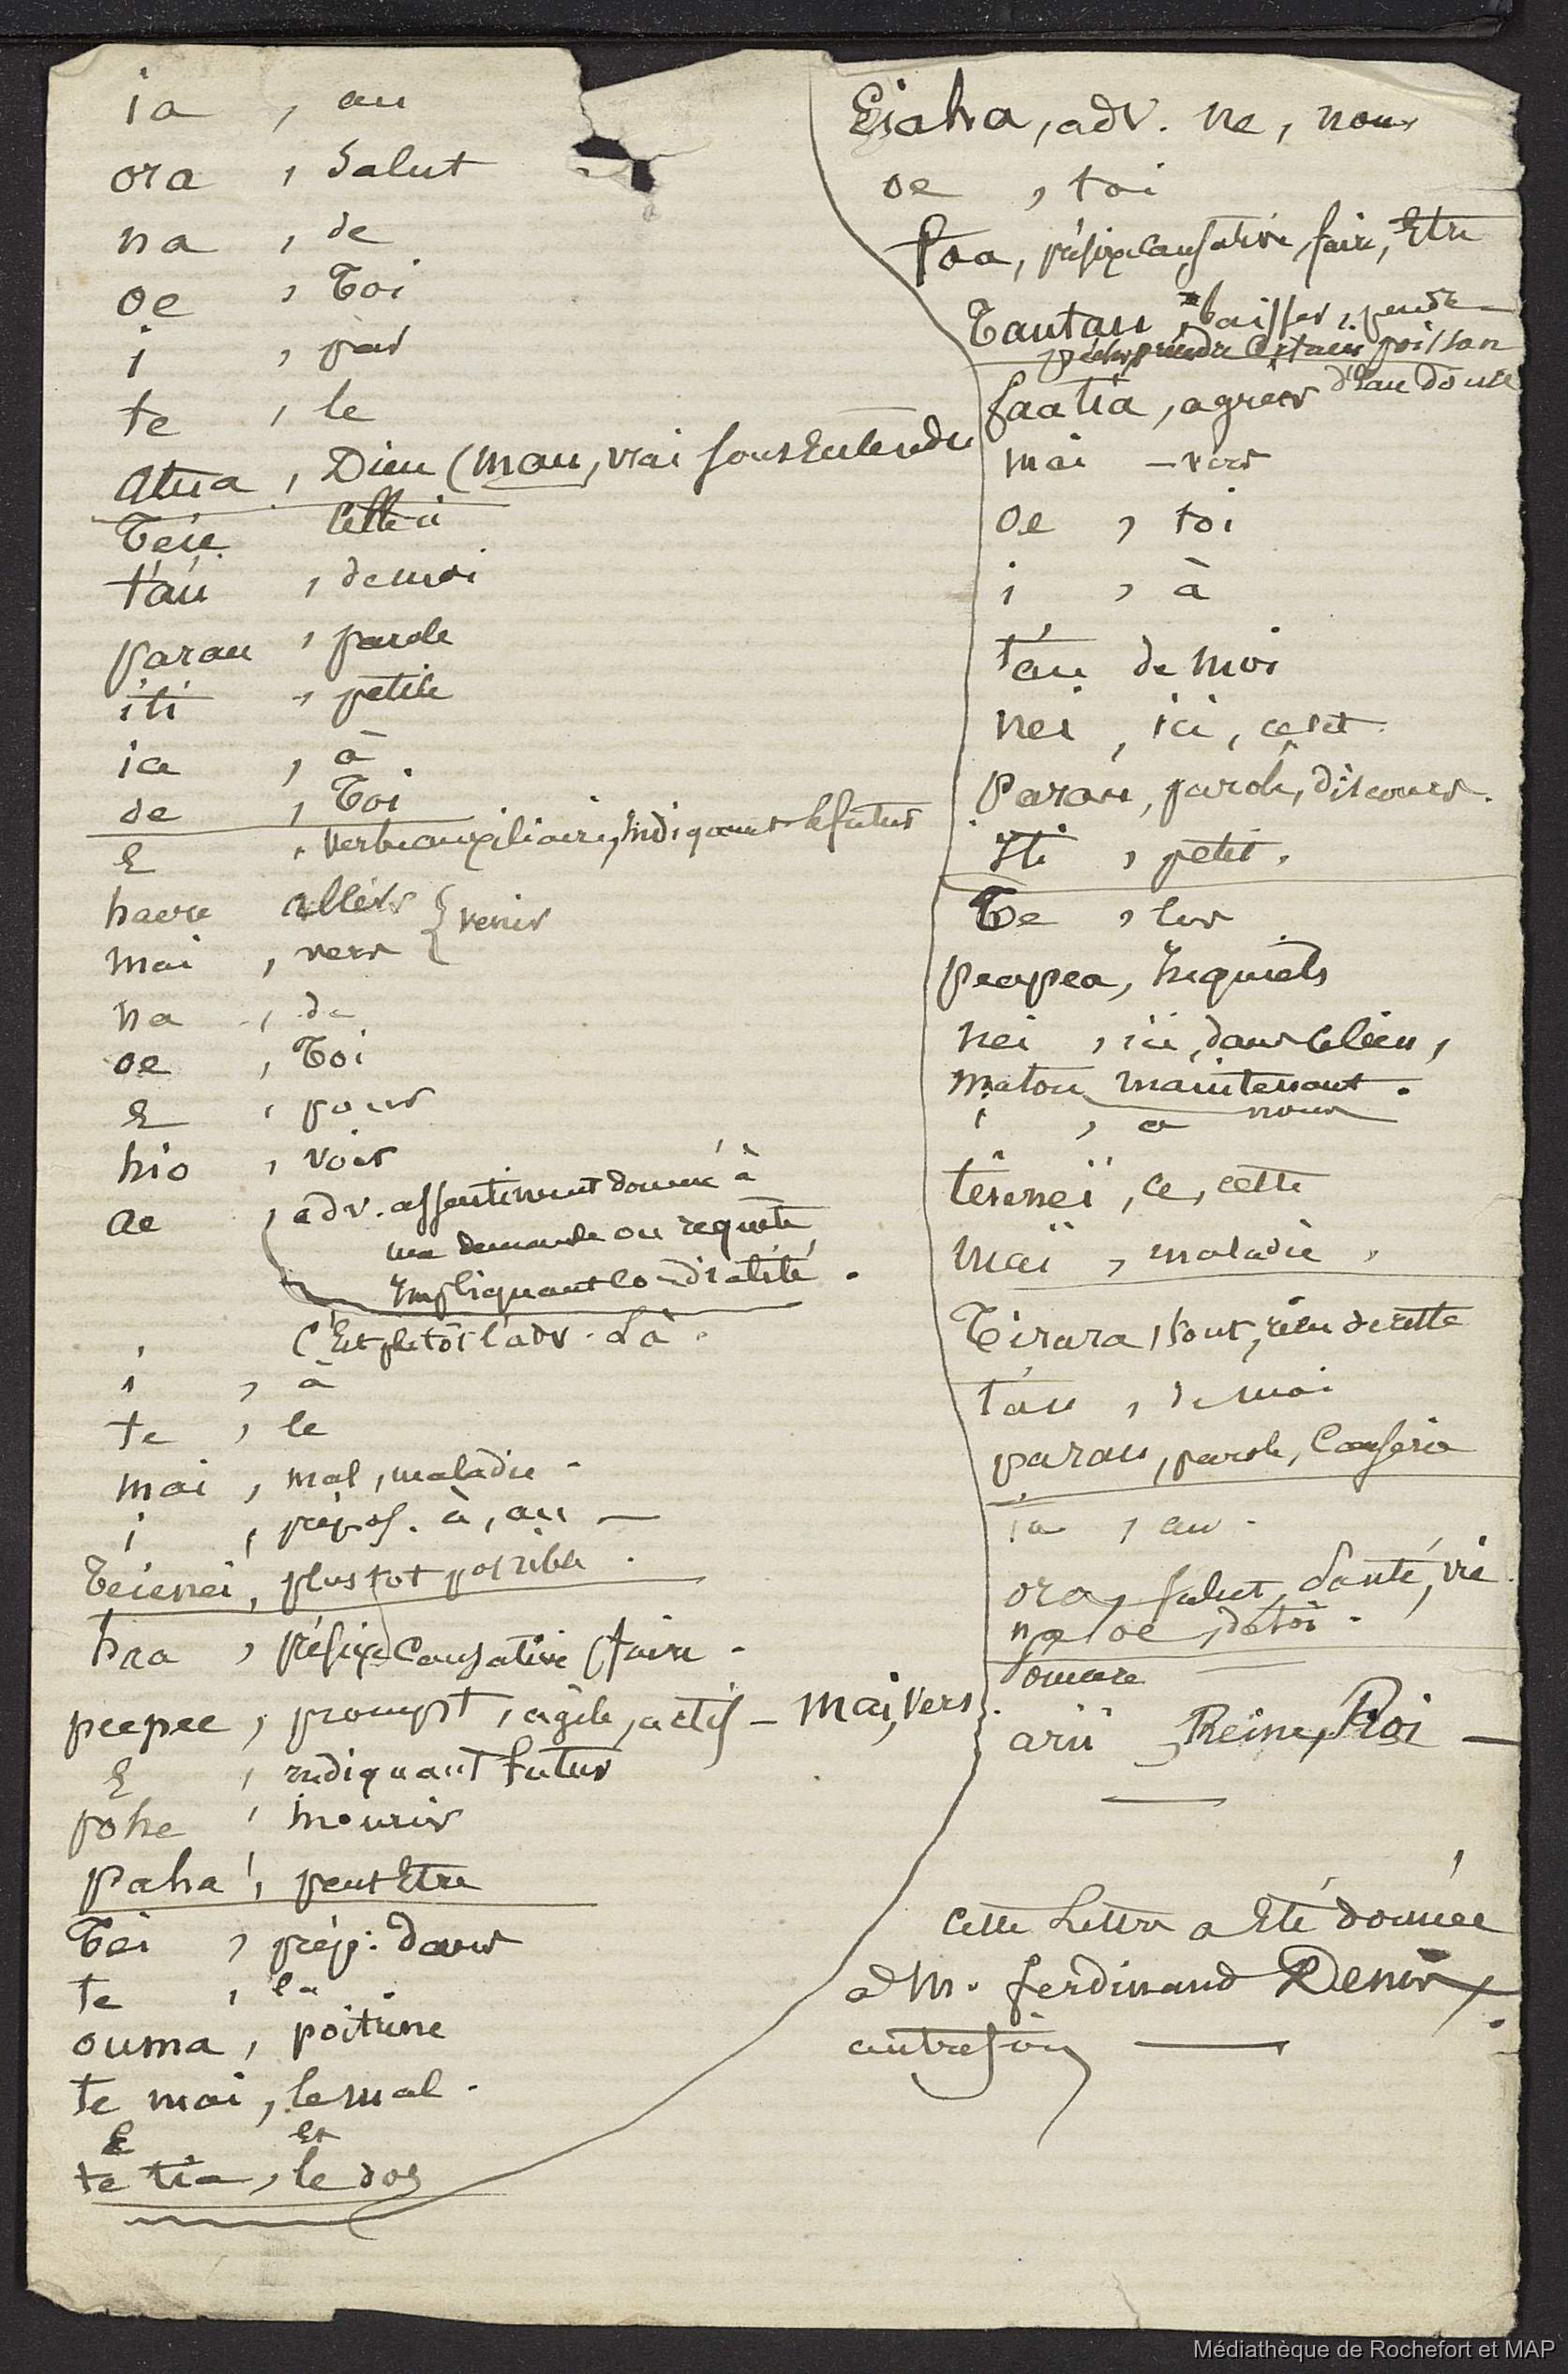 ia , au
ora , Salut
na , de
oe , Toi
i , par
te , le
Atua , Dieu (mau, vrai sousentendu
Teie celleci
t'au , de moi
parau , parole
iti , petite
ia , à
oe , Toi
E , verbe auxiliaire, indiquant le futur
haere aller
mai , vers } venir
na , de
oe , Toi
E , pour
hio , voir
ae , adv. assentiment donné à
une demande ou requête
impliquant cordialité.
C'est plutôt l'adv. Là.
i , à
te , le
mai , mal, maladie -
i , prépos. à, au —
Teienei, plus tot possible.
haa , préfixe causative (faire -
peepee , prompt, agile, actif - mai, vers.
E , indiquant futur
pohe , mourir
paha , peut Etre
Tei , prép. dans
te , la
ouma , poitrine
te mai , le mal .
E Et
te tia , le dos
Eiaha , adv. ne, non
oe , toi
faa, préfixe causative, faire, Etre
Tautau , baisser, pendre
prendre certain poisson
d'eau douce
faatia , agréer
mai - vers
oe , toi
i , à
t'au de moi
nei , ici, cest
Parau, parole, discours.
Iti , petit.
Te , les
peapea, Inquiets
nei , ici, dans ce lieu,
matou maintenant.
nous
i , a
teienei , ce, cette
maï , maladie .
Tirara , tout, rien de reste
t'au , de moi
parau, parole, Causerie
ia , au -
ora, salut, Santé, vie.
na oe , de toi -
Pomare
arii Reine, Roi —
cette Lettre a Eté donnée
a M. ferdinand Denis
autrefois —
Médiathèque de Rochefort et MAP